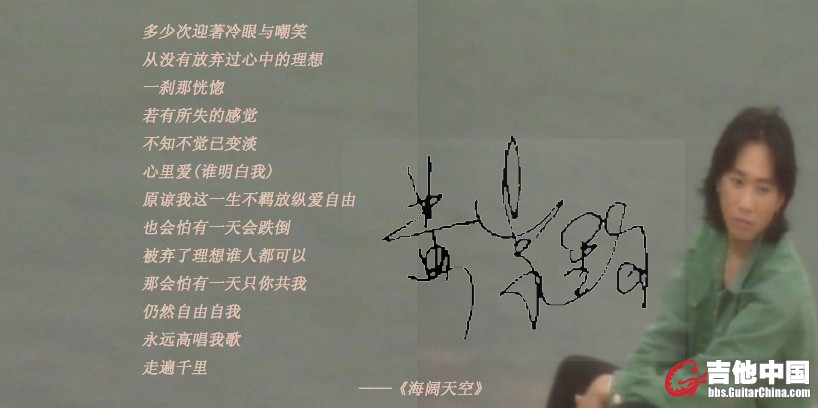 多少次迎著冷眼与嘲笑
从没有放弃过心中的理想
一刹那恍惚
若有所失的感觉
不知不觉已变淡
心里爱(谁明白我)
原谅我这一生不羁放纵爱自由
也会怕有一天会跌倒
被弃了理想谁人都可以
那会怕有一天只你共我
仍然自由自我
永远高唱我歌
走遍千里
——《海阔天空》
黄家驹
吉他中国
bbs.GuitarChina.com